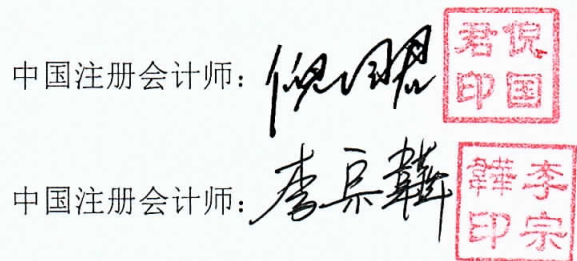 中国注册会计师：倪国君
倪国君印
中国注册会计师：李宗韡
李宗韡印